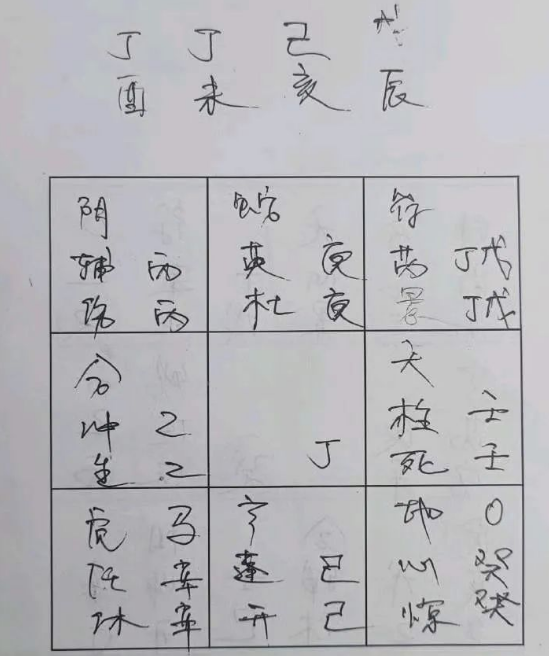 丁 丁 己
酉 未 亥 辰
阴 蛇 符
辅 丙 英 庚 芮 丁戊
伤 丙 杜 庚 景 丁戊
合 天
冲 乙 柱 壬
生 乙 丁 死 壬
虎 马 玄 地 O
任 辛 蓬 己 心 癸
休 辛 开 己 惊 癸